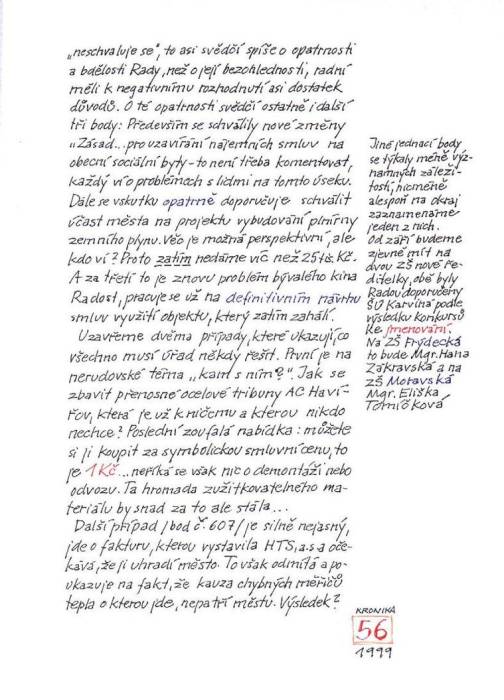 „neschvaluje se", to asi svědčí spíše o opatrnosti
a bdělosti Rady, než o její bezohlednosti, radní
měli k negativnímu rozhodnutí asi dostatek
důvodů. O té opatrnosti svědčí ostatně i další
tři body: Především se schválily nové změny
„Zásad... pro uzavírání nájemních smluv na
obecní sociální byty - to není třeba komentovat,
každý ví o problémech s lidmi na tomto úseku.
Dále se vskutku opatrně doporučuje schválit
účast města na projektu vybudování plnírny
zemního plynu. Věc je možná perspektivní, ale
kdo ví? Proto zatím nedáme víc než 25 tis. Kč.
A za třetí to je znovu problém bývalého kina
Radost, pracuje se už na definitivním návrhu
smluv využití objektu, který zatím zahálí.
Uzavřeme dvěma případy, které ukazují, co
všechno musí úřad někdy řešit. První je na
nerudovské téma „kam s ním?". Jak se
zbavit přenosné ocelové tribuny AC Haví-
řov, která je už k ničemu a kterou nikdo
nechce? Poslední zoufalá nabídka: můžete
si ji koupit za symbolickou smluvní cenu, to
je 1 Kč... neříká se však nic o demontáži nebo
odvozu. Ta hromada zužitkovatelného ma-
teriálu by snad za to ale stála...
Další případ /bod č. 607/ je silně nejasný,
jde o fakturu, kterou vystavila HTS, a.s a oče-
kává, že ji uhradí město. To však odmítá a po-
ukazuje na fakt, že kauza chybných měřičů
tepla o kterou jde, nepatří městu. Výsledek?
Jiné jednací body
se týkaly méně výz-
namných záleži-
tostí, nicméně
alespoň na okraj
zaznamenáme
jeden z nich.
Od září budeme
zjevně mít na
dvou ZŠ nové ře-
ditelky, obě byly
Radou doporučeny
ŠÚ Karviná podle
výsledku konkursů
ke jmenování.
Na ZŠ Frýdecká
to bude Mgr. Hana
Zákravská a na
ZŠ Moravská
Mgr. Eliška
Tomíčková
KRONIKA
56
1999